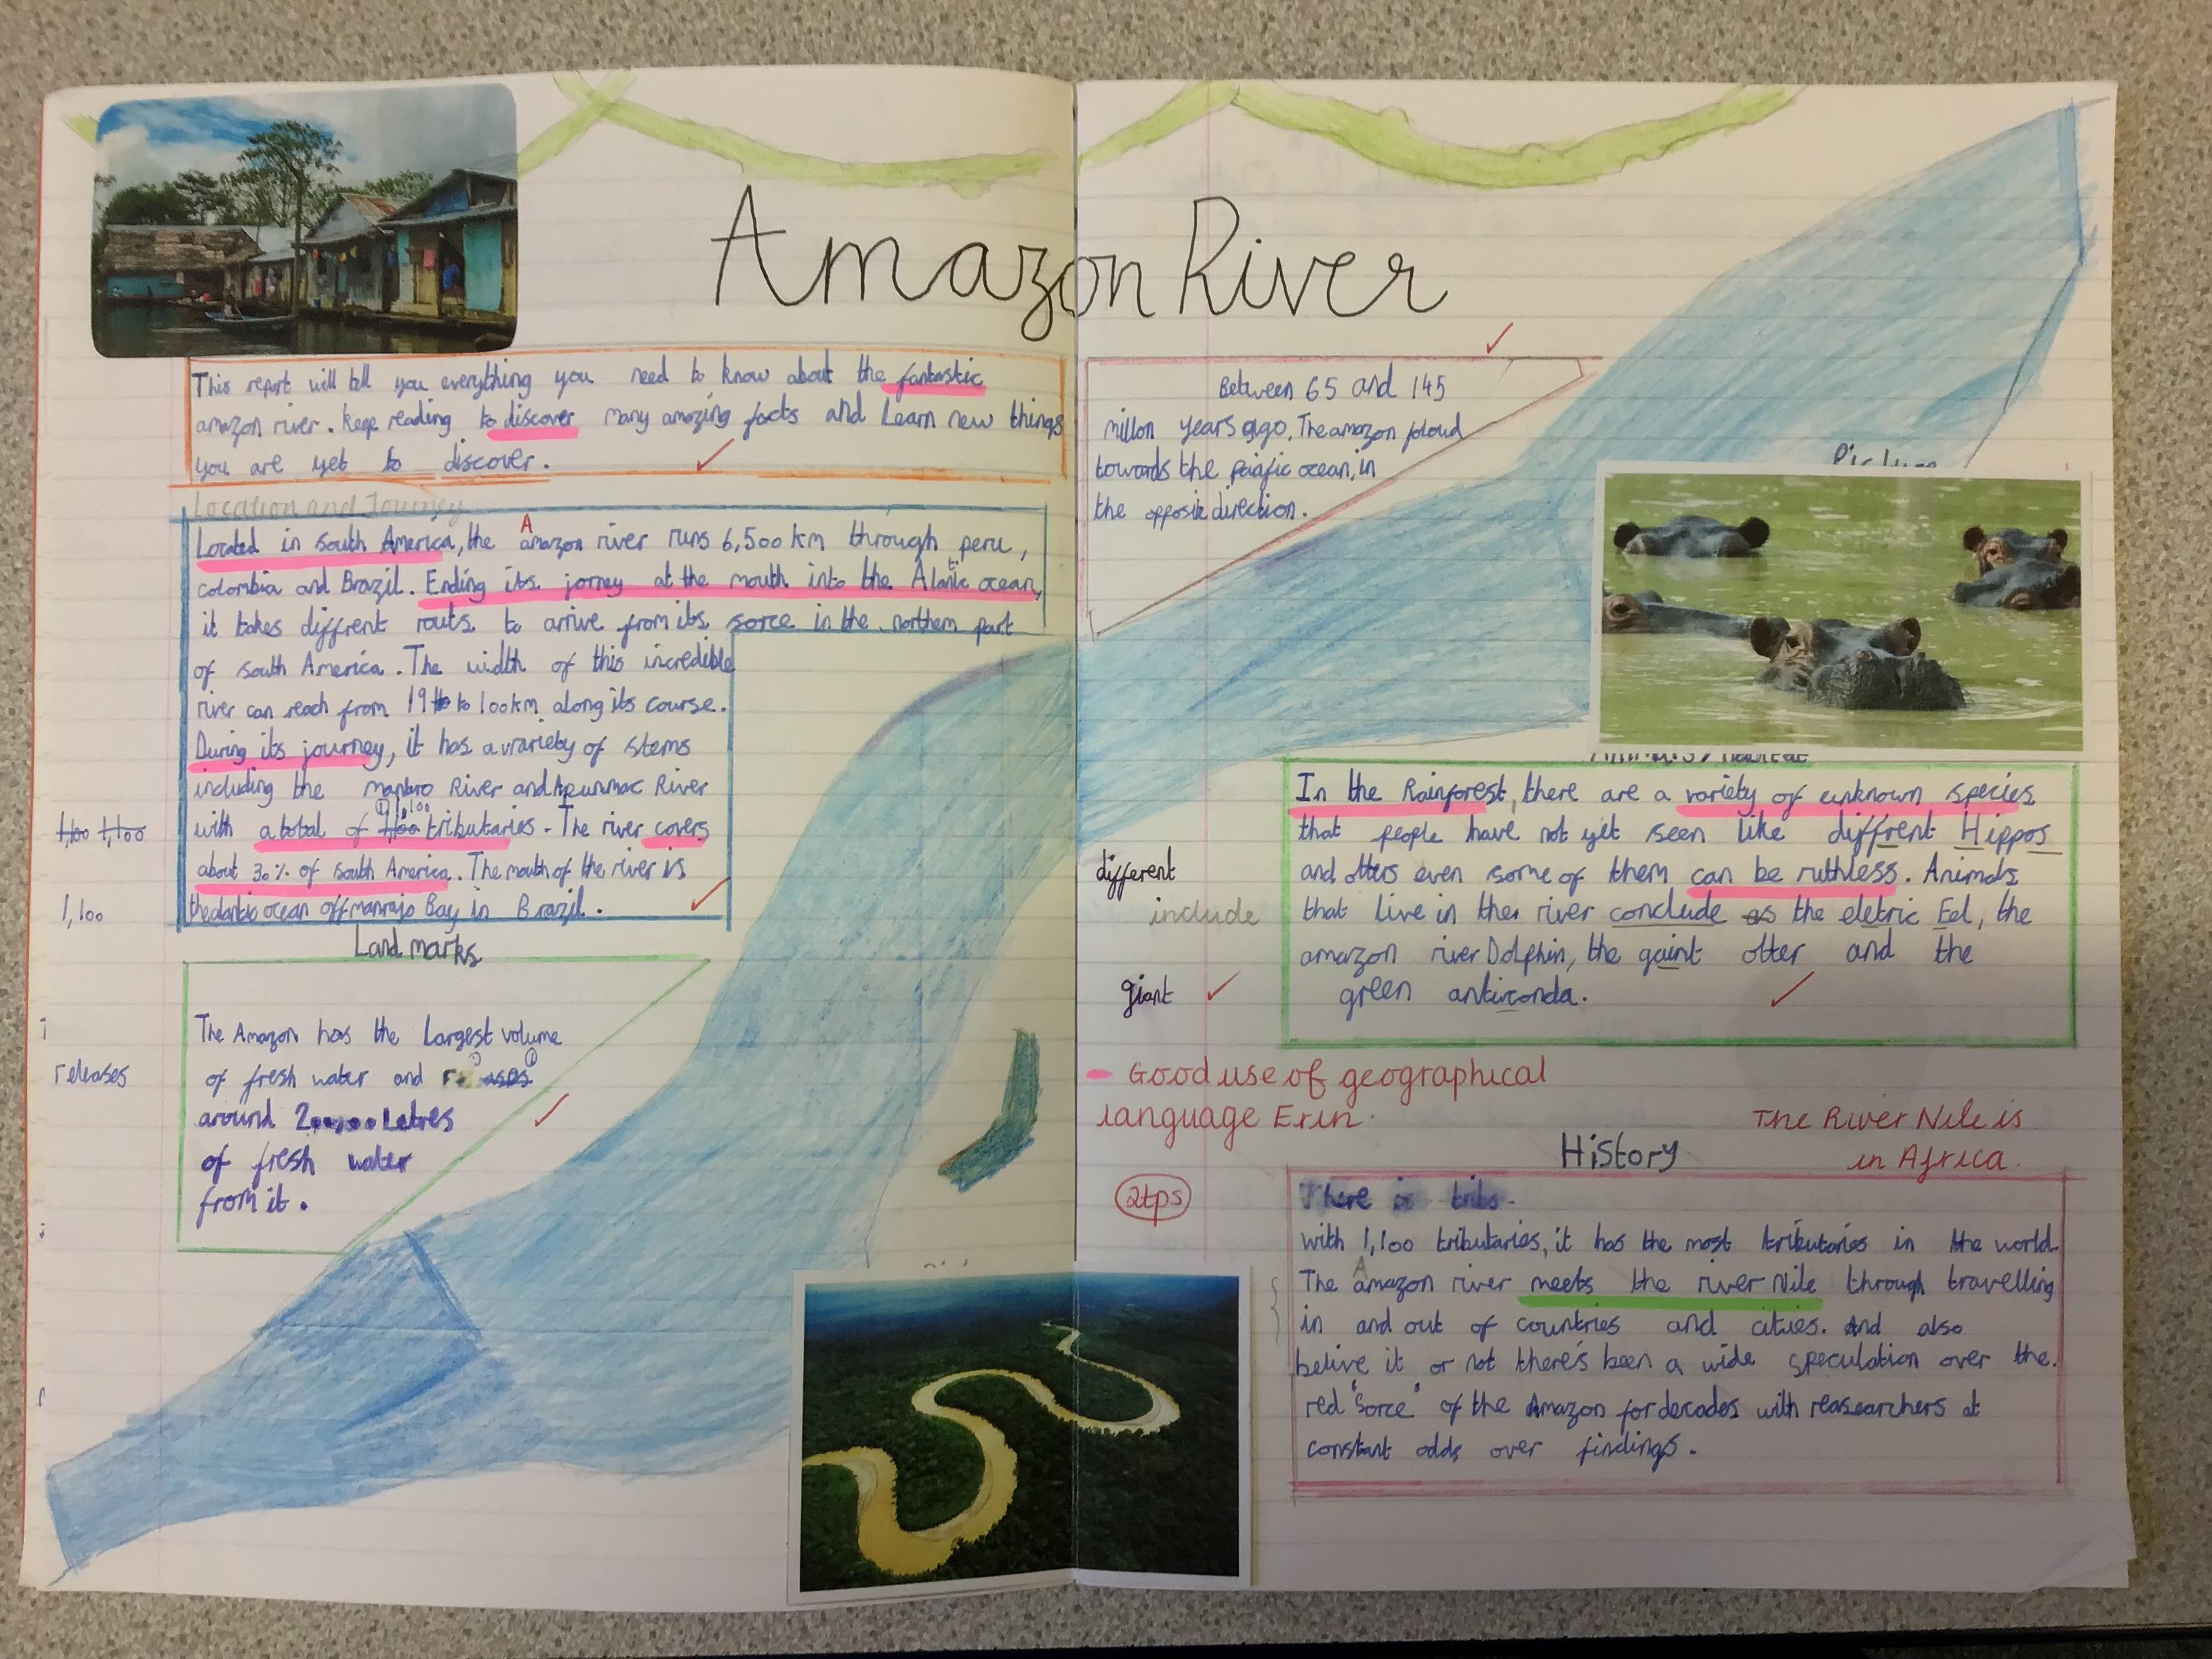 Amazon River
This report will tell you everything you need to know about the fantastic
amazon river. keep reading to discover many amazing facts and Learn new things
you are yet to discover.
Location and Journey
Located in south America, the amazon river runs 6,500 km through peru,
A
colombia and Brazil. Ending its jorney at the mouth into the Alantic ocean,
t
it takes diffrent routs to arrive from its sorce in the northern part
of south America. The width of this incredible
river can reach from 19 to 100km along its course.
During its journey, it has a variety of stems
including the River and River
with a total of 1,100 tributaries. The river covers
1,100 1,100
about 30% of south America. The mouth of the river is
1,100
ocean off Bay in Brazil.
Landmarks
The Amazon has the Largest volume
of fresh water and
releases
around Letres
of fresh water
from it.
Between 65 and 145
millon years ago, The amazon floud
towards the pacific ocean, in
the opposite direction.
Picture
In the Rainforest, there are a variety of unknown species
that people have not yet seen like diffrent Hippos
different
and otters even some of them can be ruthless. Animals
include
that live in the river conclude as the eletric Eel, the
amazon river Dolphin, the gaint otter and the
giant
green
- Good use of geographical
language Erin.
The River Nile is
in Africa.
History
2tps
There is tribs.
with 1,100 tributaries, it has the most tributaries in the world.
The amazon river meets the river Nile through travelling
A
in and out of countries and cities. And also
belive it or not there's been a wide speculation over the
red "Sorce" of the Amazon for decades with reasearchers at
constant odds over findings.